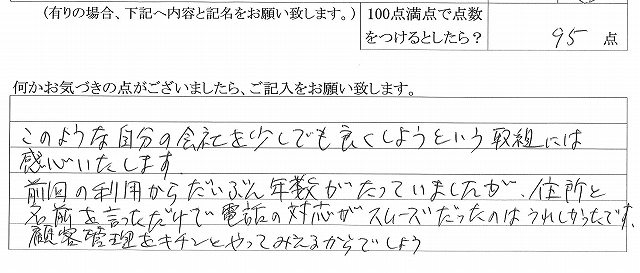 (有りの場合、下記へ内容と記名をお願い致します。)
100点満点で点数
をつけるとしたら?
95 点
何かお気づきの点がございましたら、ご記入をお願い致します。
このような自分の会社を少しでも良くしようという取組には
感心いたします
前回の利用からだいぶん年数がたっていましたが、住所と
名前を言っただけで電話の対応がスムーズだったのはうれしかったです。
顧客管理をキチンとやってみえるからでしょう